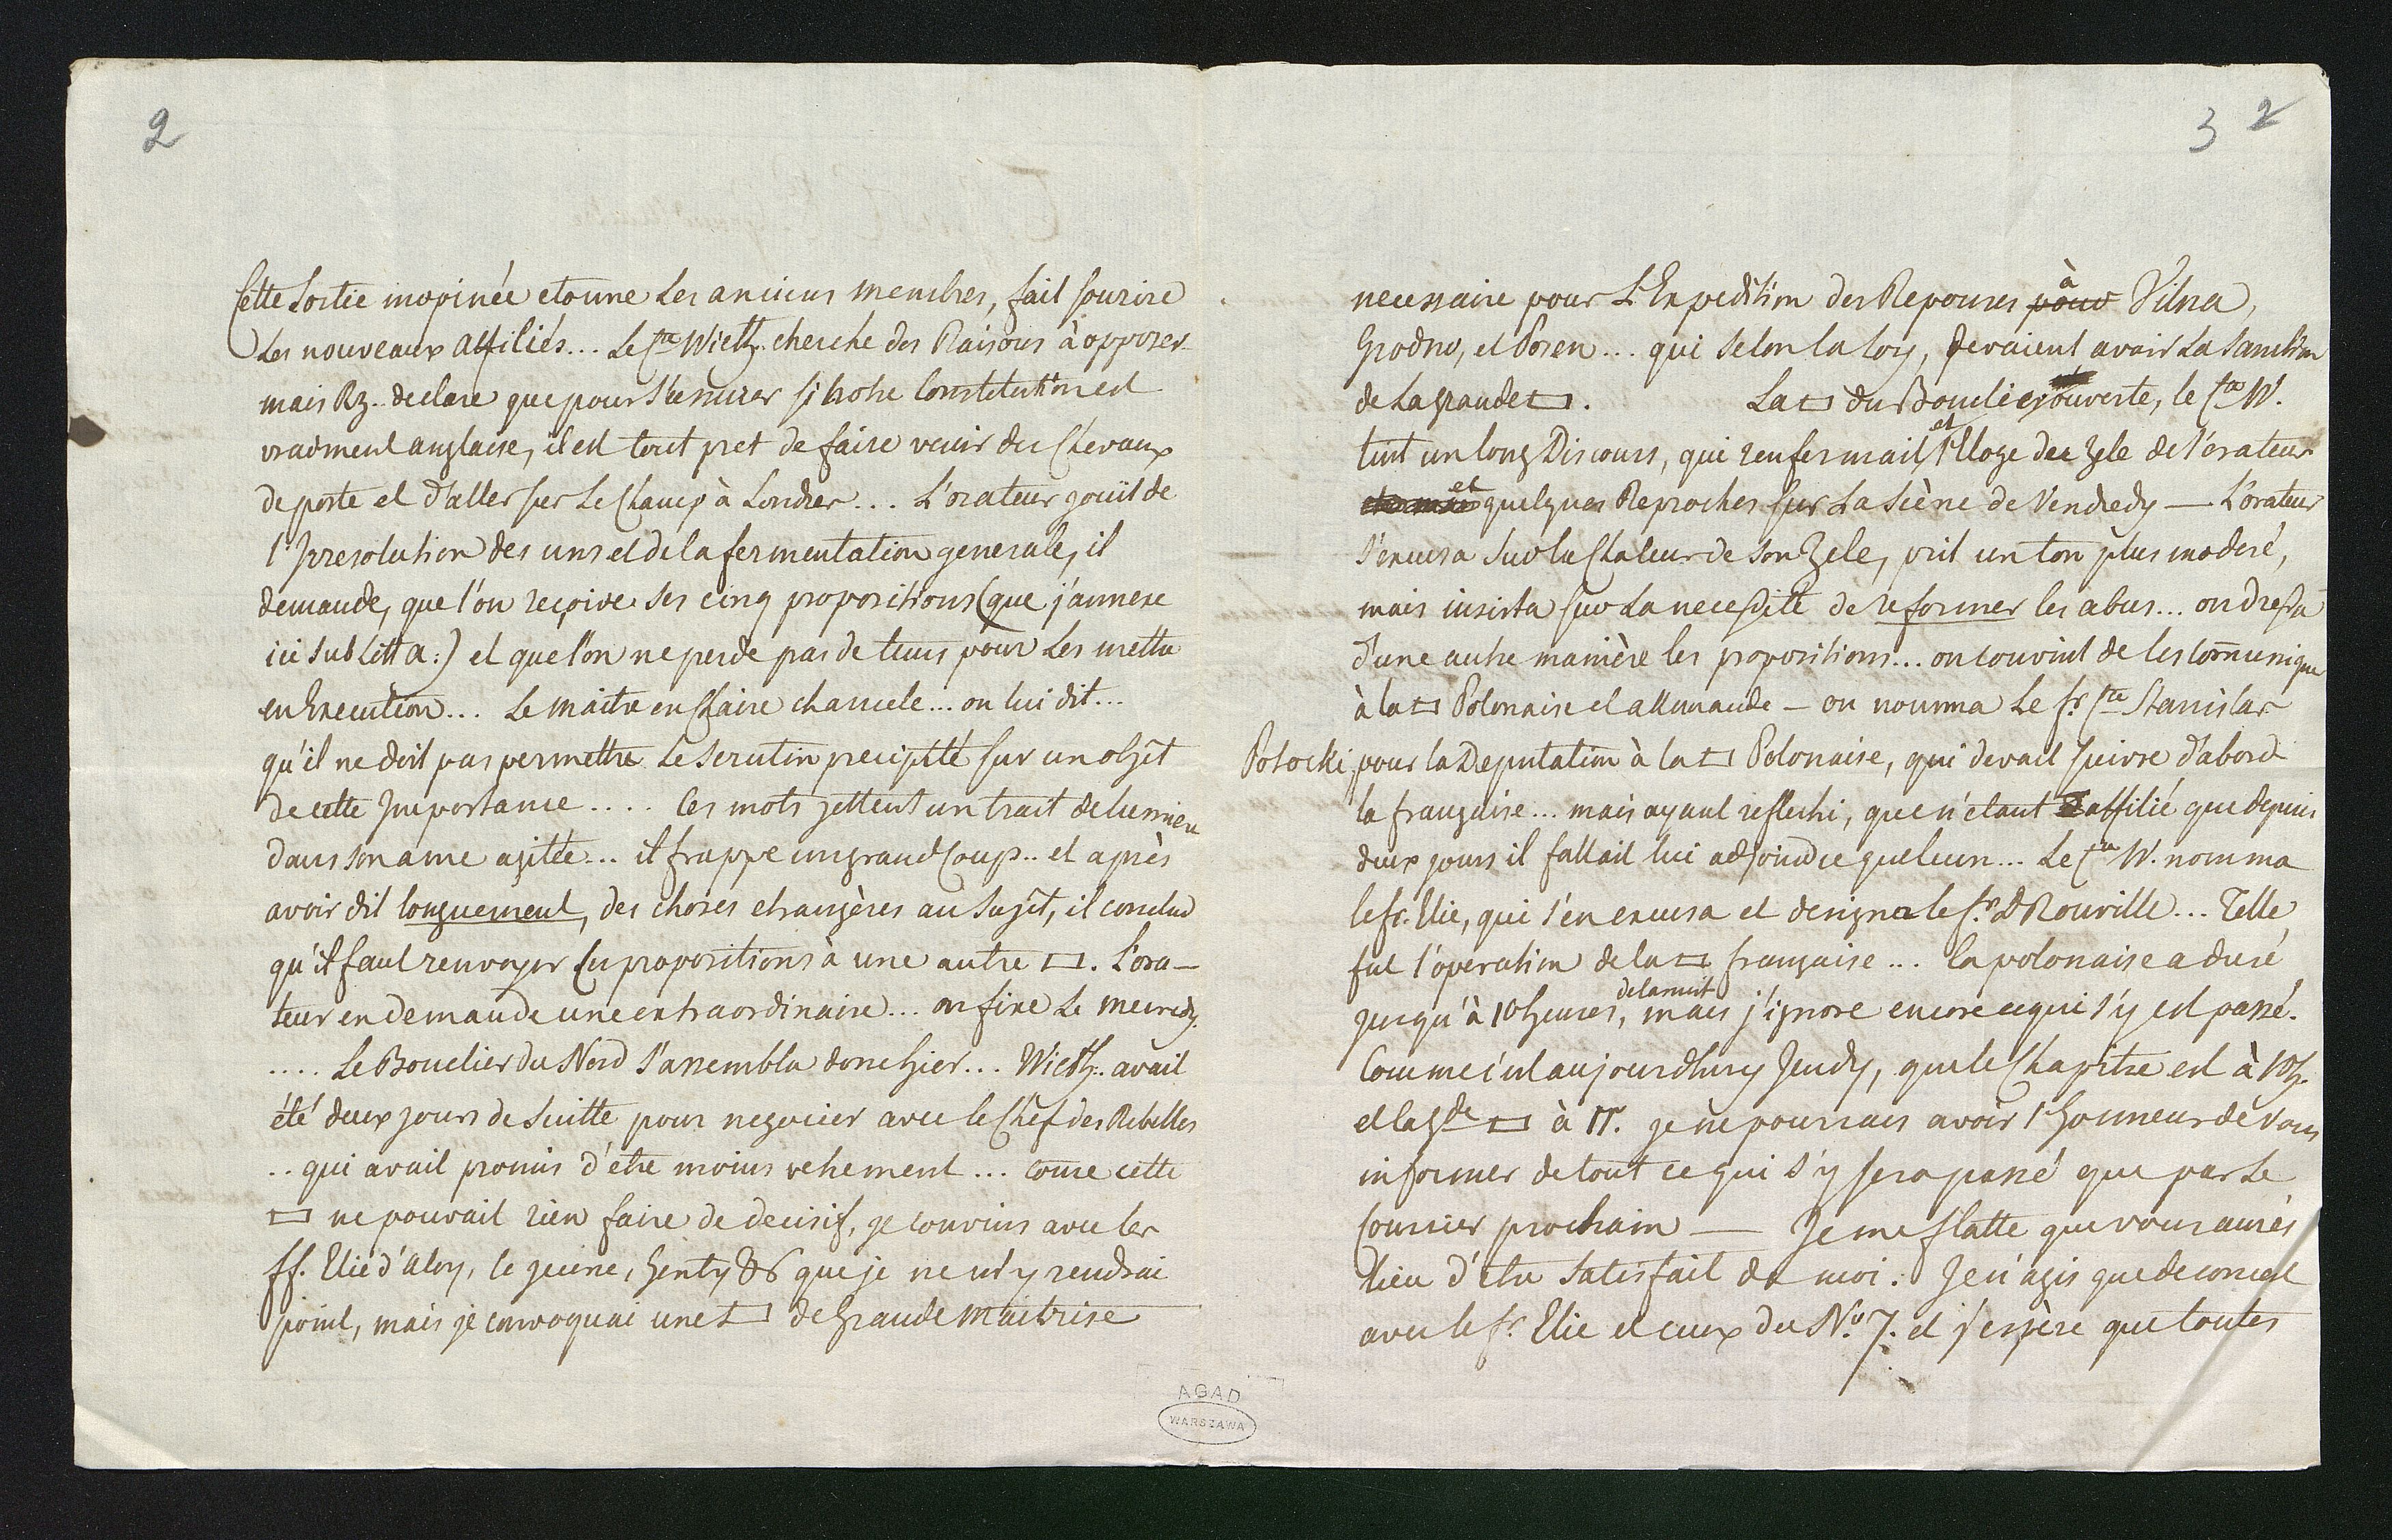 2
Cette Sortie inopinée etonne Les anciens membres, fait sourire
Les nouveaux affiliés... Le Cte Wielh. cherche des Raisons à opposer
mais Rz. declare que pour s'assurer si notre Constitution est
vraiment anglaise, il est tout pret de faire venir des Chevaux
de poste et d'aller sur Le Champ à Londres... L'orateur jouit de
l'Irresolution des uns et de la fermentation generale, il
demande, que l'on reçoive ses cinq propositions (que j'annexe
ici sub Litt a:) et que l'on ne perde pas de tems pour Les mettre
en Execution... Le maitre en Chaire chancele... on lui dit...
qu'il ne doit pas permettre Le scrutin precipité sur un objet
de cette Importance.... Ces mots jettent un trait de lumiere
dans son ame agitée... il frappe un grand Coup.. et après
avoir dit longuement, des choses etrangères au Sujet, il conclud
qu'il faut renvoyer Les propositions à une autre ▭. L'ora-
teur en demande une extraordinaire... on fixe Le mecredy.
.... Le Bouclier du Nord s'assembla donc hier... Wielh. avait
été deux jours de Suitte pour negocier avec le Chef des Rebelles
.. qui avait promis d'etre moins vehement... come cette
▭ ne pouvait rien faire de decisif, je convins avec les
ff. Elie d'Aloy, le jeune, Henty &c que je ne m'y rendrai
point, mais je convoquai une ▭ de Grande Maitrise
3 2
necessaire pour L'Expedition des Reponses pour à Vilna,
Grodno, et Posen... qui selon la Loy, devaient avoir La Sanction
de La grande ▭. La ▭ du Bouclier ouverte, le Cte W.
tint un long Discours, qui renfermait et l'Eloge du Zele de l'orateur
et quelques Reproches sur La Scène de Vendredy — L'orateur
s'excusa sur la Chaleur de son Zele, prit un ton plus moderé,
mais insista sur La necessité de reformer les abus... on dressa
d'une autre manière les propositions... on convint de les comunique
à la ▭ Polonaise et allemande — on nomma Le fr. Cte Stanislas
Potocki, pour la Deputation à la ▭ Polonaise, qui devait suivre d'abord
la française... mais ayant reflechi, que n'etant affilié que depuis
deux jours il fallait lui adjoindre quelcun... Le Cte W. nomma
le fr. Elie, qui s'en excusa et designa le fr. D Rouville... Telle
fut l'operation de la ▭ française... la polonaise a duré
jusqu'à 10 heures, de la nuit mais j'ignore encore ce qui s'y est passé.
Comme c'est aujourdhuy Jeudy, que le Chapitre est à 10 h.
et la gde ▭ à 11. je ne pourrais avoir l'honneur de Vous
informer de tout ce qui s'y sera passé que par Le
Courrier prochain — Je me flatte que vous aurés
lieu d'etre Satisfait de moi. Je n'agis que de concert
avec le fr. Elie et ceux du No. 7. et j'espère que toutes
AGAD
WARSZAWA